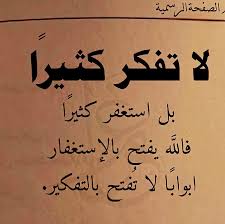 الصفحة الرسمية
لا تفكر كثيرًا
بل استغفر كثيرًا
فالله يفتح بالإستغفار
ابوابًا لا تُفتح بالتفكير.